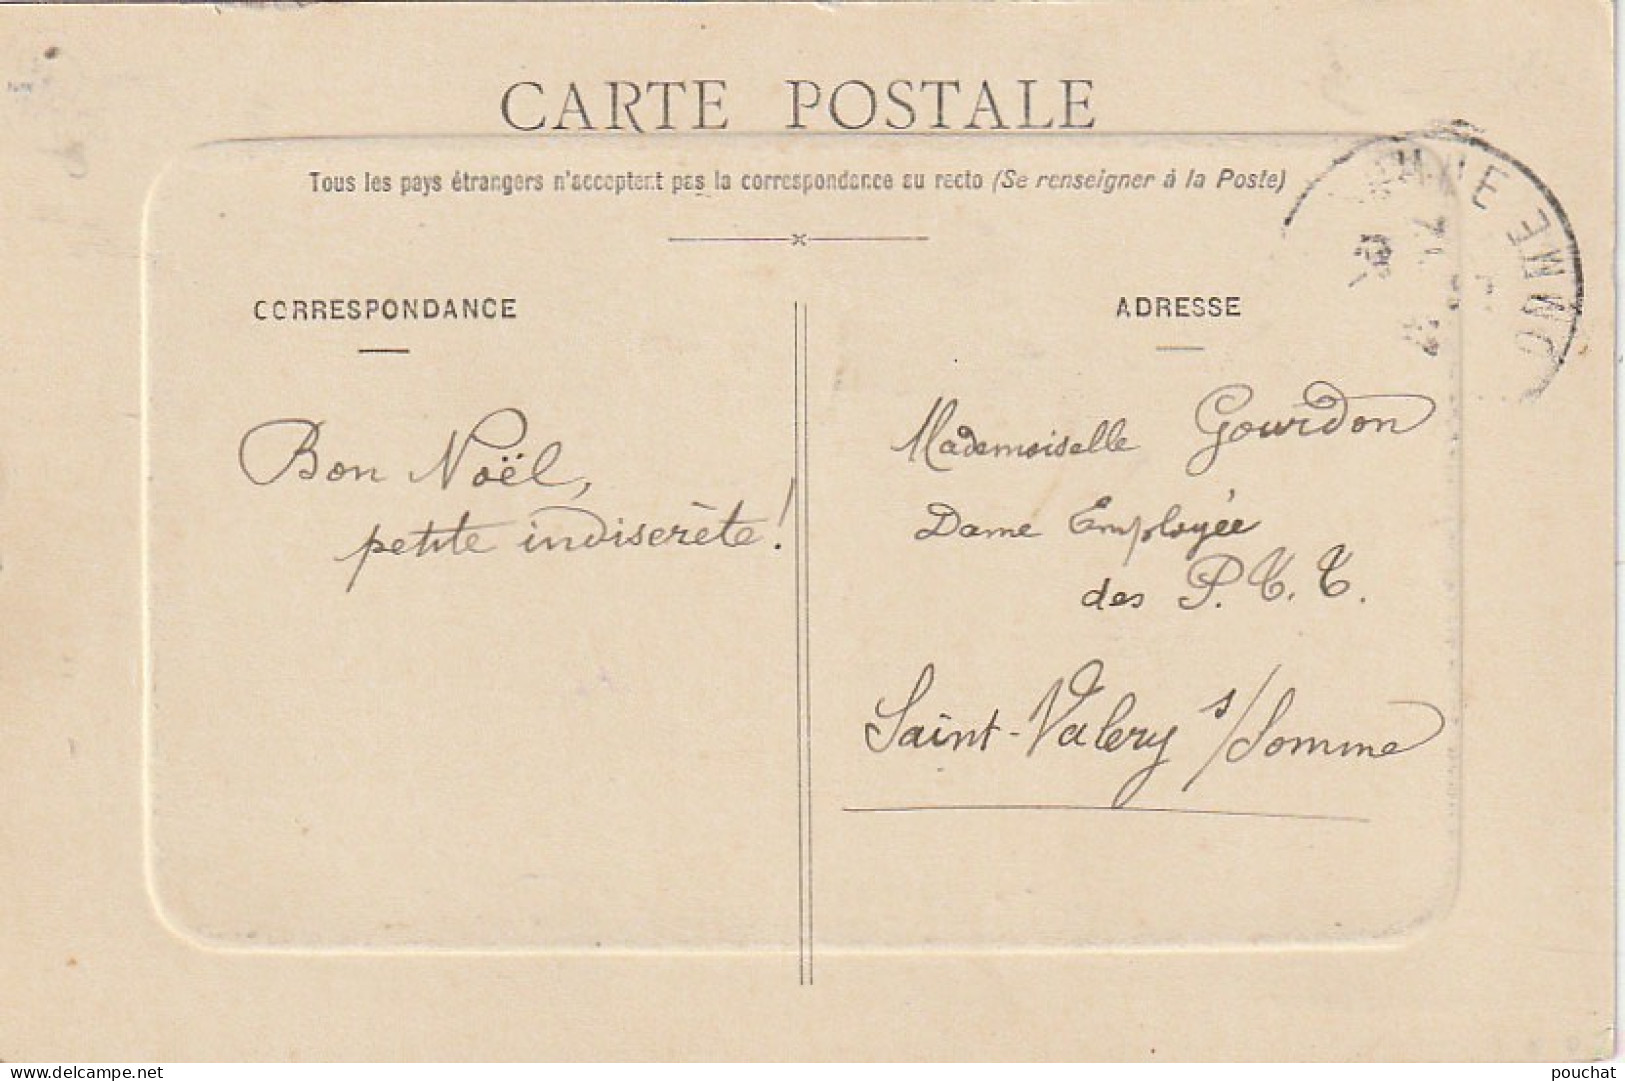 CARTE POSTALE
Tous les pays étrangers n'acceptent pas la correspondance au recto (Se renseigner à la Poste)
CORRESPONDANCE
Bon Noël,
petite indiscrète!
ADRESSE
Mademoiselle Gourdon
Dame Employée
des P.T.T.
Saint-Valery s/Somme
OMME
delcampe.net
pouchat